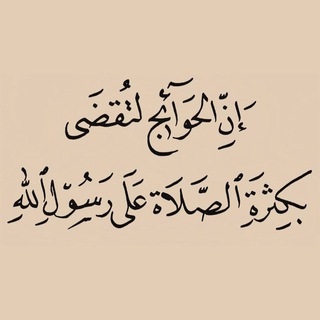 وَإِنَّ الحَوَآئِجَ لتُقضَى
بِكِثرَةِ ٱلصَّلَاةِ عَلَى رَسُوْلِ ٱللهِ